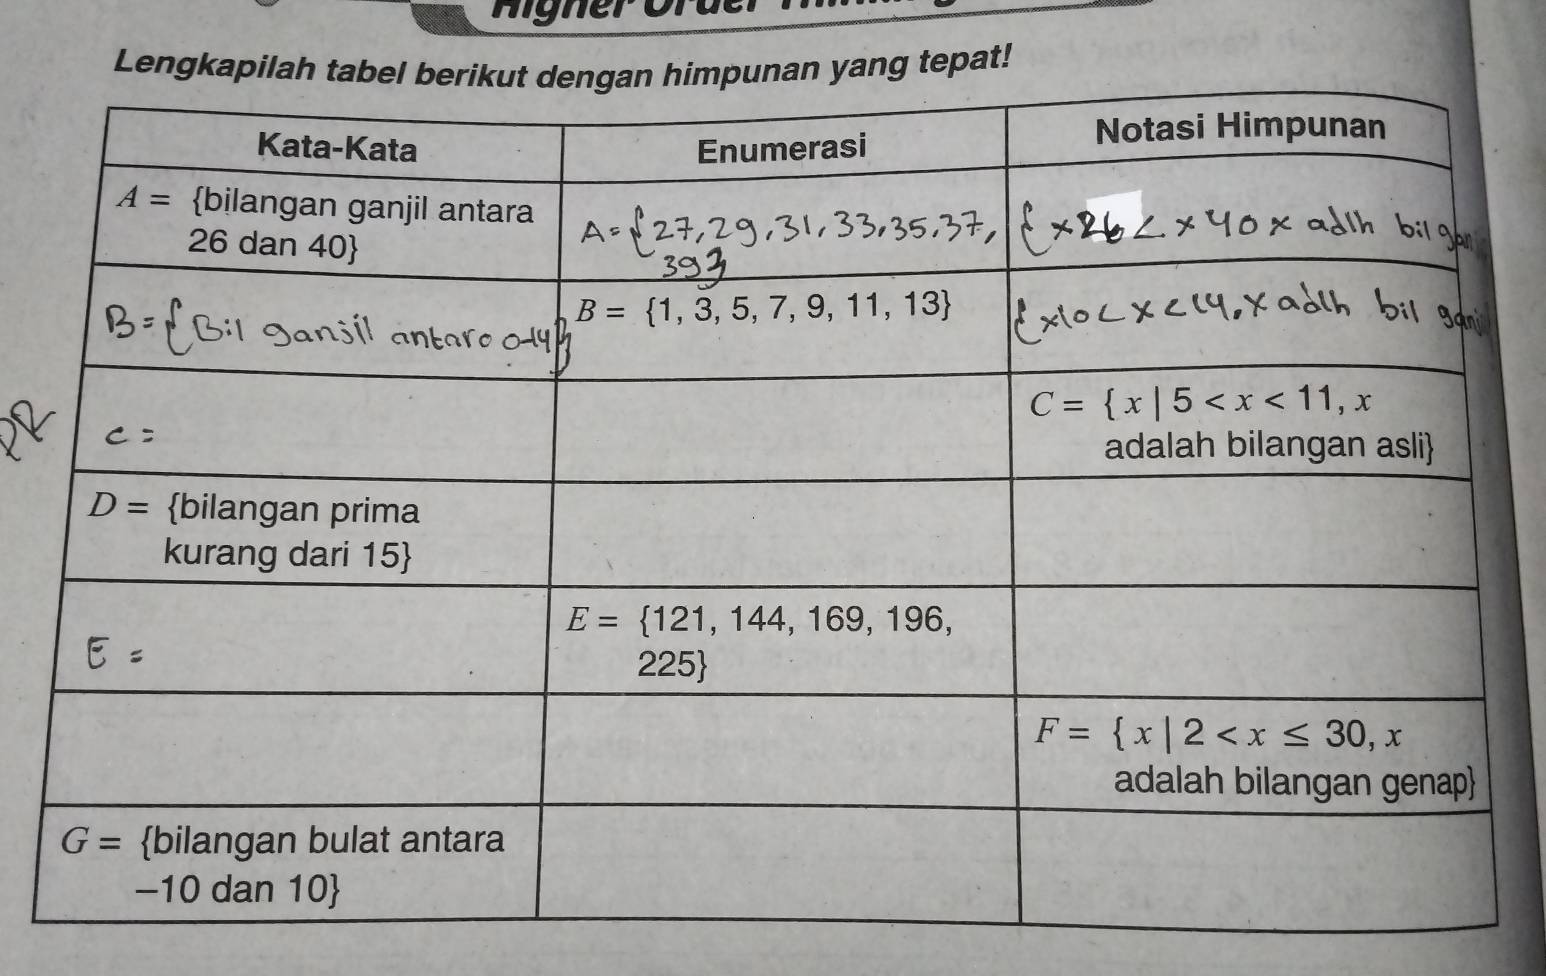 Higher Order
Lengkapilah tabel berikut dengan himpunan yang tepat!
Kata-Kata
Enumerasi
Notasi Himpunan
A = {bilangan ganjil antara
26 dan 40}
A = {27, 29, 31, 33, 35, 37,
39}
{x 26 < x 40 x adlh bil ganji
B = {Bil ganjil antara 0-14}
B = {1, 3, 5, 7, 9, 11, 13}
{x|0 < x < 14, x adlh bil ganji
PR
C =
C = {x | 5 < x < 11, x
adalah bilangan asli}
D = {bilangan prima
kurang dari 15}
E =
E = {121, 144, 169, 196,
225}
F = {x | 2 < x ≤ 30, x
adalah bilangan genap}
G = {bilangan bulat antara
–10 dan 10}